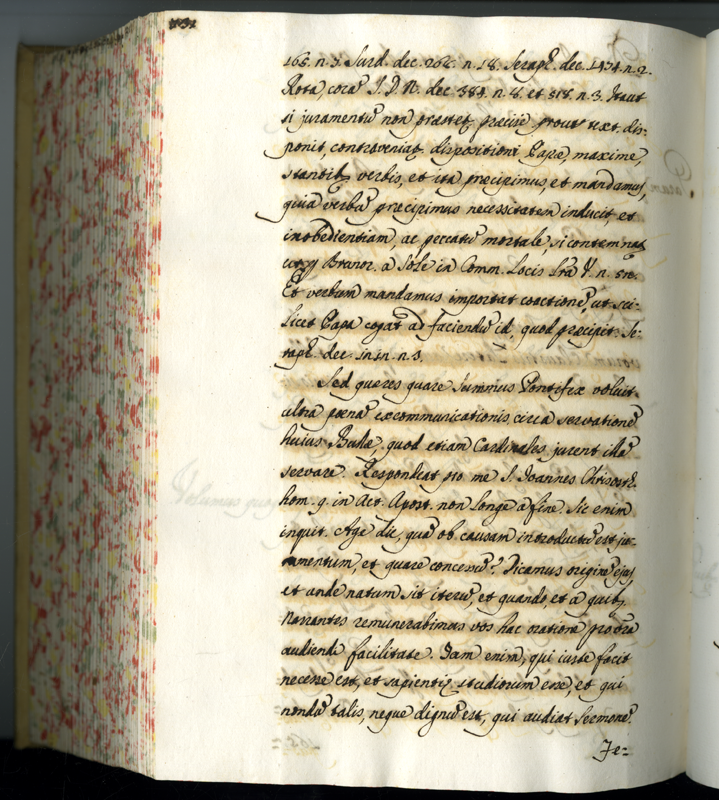 165. n. 3. Surd. dec. 262. n. 18. Seraph. dec. 1474. n. 2.
Rota, corā I. D. N. dec. 384. n. 8. et 518. n. 3. Itaut
si juramentū non præstet, præcise prout text. dis:
ponit, contraveniat dispositioni Papæ, maxime,
stantibꝫ verbis, et ita præcipimus, et mandamus,
quia verbū præcipimus necessitatem inducit, et
inobedientiam, ac peccatū mortale, si contemnat
Brunor. a Sole in Comm. Locis Lrā V. n.
Et verbum mandamus importat coactionē, ut sci:
licet Papa cogat ad faciendū id, quod præcipit. Se:
raph. dec. n. 3.
Sed quæres quare Summus Pontifex voluit
ultra pœnā excommunicationis, circa servationē
huius Bullæ, quod etiam Cardinales jurent illā
servare. Respondeat pro me S. Ioannes Chrisost.
hom. 9. in Act. Apost. non longe a fine. Sic enim
inquit. Age dic, quā ob causam introductū est ju:
ramentum, et quare concessū? Dicamus originē ejus,
et unde natum sit iterū, et quando, et a quibꝫ
Narrantes remunerabimus vos hac oratione pro vrā
audiendi facilitate. Nam enim, qui iuste facit
necesse est, et sapientiæ studiorum esse, et qui
nondū talis, neque dignus est, qui audiat sermonē.
Je=